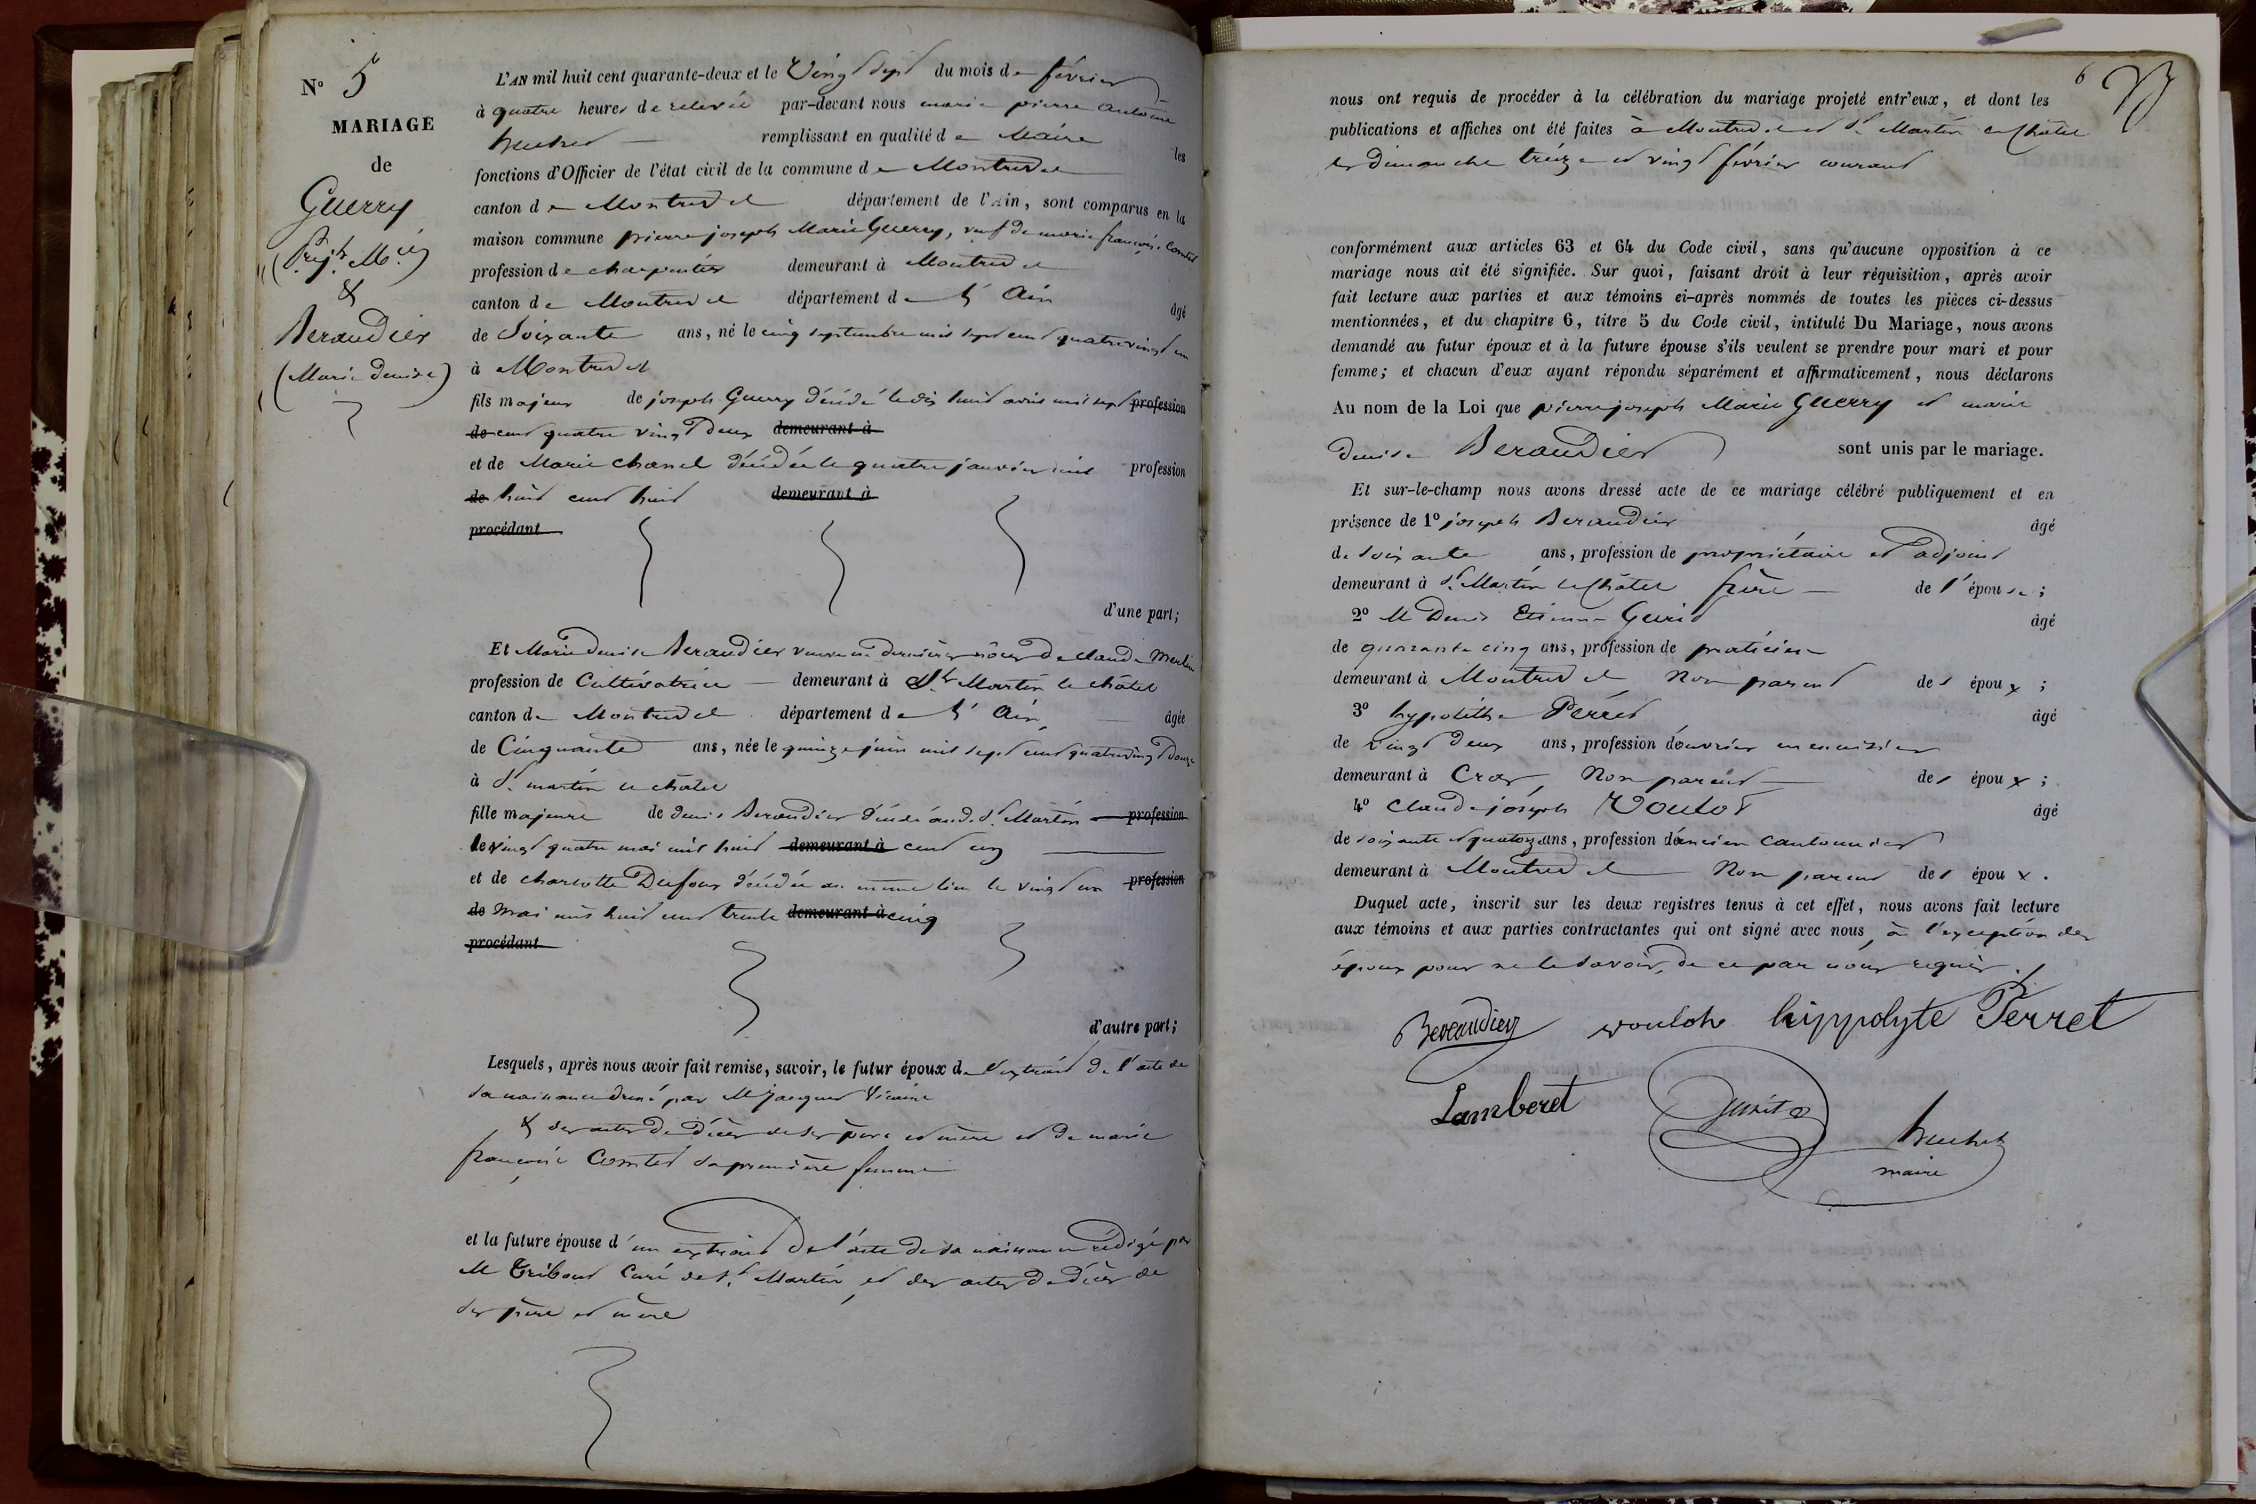 N° 5
MARIAGE
de
Guerry
(Pre. Jh. Mie)
&
Beraudier
(Marie denise)
L'AN mil huit cent quarante-deux et le Vingt Sept du mois de février
à quatre heures de relevée par-devant nous marie pierre antoine
remplissant en qualité de Maire les
fonctions d'Officier de l'état civil de la commune de Montrevel
canton de Montrevel département de l'Ain, sont comparus en la
maison commune pierre joseph Marie Guerry, veuf de marie françoise Comtet
profession de charpentier demeurant à Montrevel
canton de Montrevel département de l'Ain âgé
de Soixante ans, né le cinq septembre mil sept cent quatrevingt un
à Montrevel
fils majeur de joseph Guerry décédé le dix huit avril mil sept profession
de cent quatre vingt deux demeurant à
et de Marie chanel décédée le quatre janvier mil profession
de huit cent huit demeurant à
procédant
d'une part;
Et Marie Denise Beraudier veuve en dernières nôces de claude Merlin
profession de Cultivatrice demeurant à St Martin le châtel
canton de Montrevel département de l'Ain, âgée
de Cinquante ans, née le quinze juin mil sept cent quatrevingt douze
à St martin le châtel
fille majeure de denis Beraudier décédé aud. St Martin profession
le vingt quatre mai mil huit demeurant à cent cinq
et de charlotte Dufour décédée au même lieu le vingt un profession
de mai mil huit cent trente demeurant à cinq
procédant
d'autre part;
Lesquels, après nous avoir fait remise, savoir, le futur époux de l'extrait de l'acte de
sa naissance dressé par M jacques Vicaire
& des actes de décès de ses père et mère et de marie
françoise Comtet sa première femme
et la future épouse d'un extrait de l'acte de sa naissance rédigé par
M Tribout Curé de St Martin, et des actes de décès de
ses père et mère
6
nous ont requis de procéder à la célébration du mariage projeté entr'eux, et dont les
publications et affiches ont été faites à Montrevel et St Martin le Châtel
les dimanche treize et vingt février courant
conformément aux articles 63 et 64 du Code civil, sans qu'aucune opposition à ce
mariage nous ait été signifiée. Sur quoi, faisant droit à leur réquisition, après avoir
fait lecture aux parties et aux témoins ci-après nommés de toutes les pièces ci-dessus
mentionnées, et du chapitre 6, titre 5 du Code civil, intitulé Du Mariage, nous avons
demandé au futur époux et à la future épouse s'ils veulent se prendre pour mari et pour
femme; et chacun d'eux ayant répondu séparément et affirmativement, nous déclarons
Au nom de la Loi que pierre joseph Marie Guerry et marie
denise Beraudier sont unis par le mariage.
Et sur-le-champ nous avons dressé acte de ce mariage célébré publiquement et en
présence de 1° joseph Beraudier âgé
de soixante ans, profession de propriétaire et adjoint
demeurant à St Martin le Châtel frère de l'épouse;
2° M Denis Etienne Gurit âgé
de quarante cinq ans, profession de praticien
demeurant à Montrevel Non parent des époux;
3° hypolithe Perret âgé
de vingt deux ans, profession d'ouvrier menuisier
demeurant à Cras, Non parent des époux;
4° Claude joseph Voulot âgé
de soixante et quatorze ans, profession d'ancien cantonnier
demeurant à Montrevel Non parent des époux.
Duquel acte, inscrit sur les deux registres tenus à cet effet, nous avons fait lecture
aux témoins et aux parties contractantes qui ont signé avec nous, à l'exception des
époux pour ne le savoir, de ce par nous requis.
Beraudier woulote hippolyte Perret
Lamberet Gurit
maire